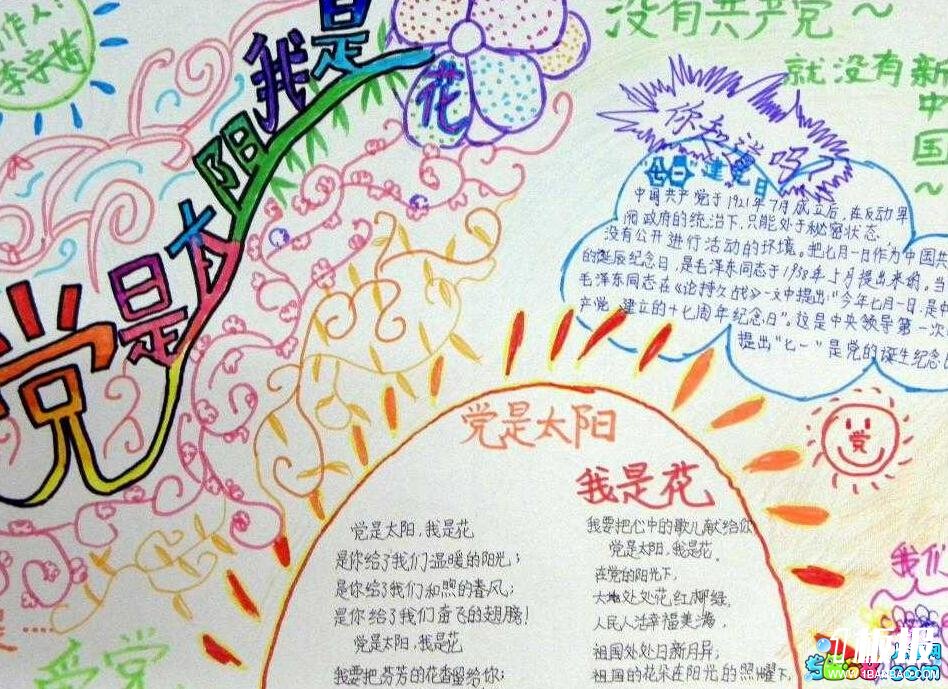 作人：
李宇琦
党是太阳我是花
没有共产党～
就没有新
中
国
～
你知道吗？
"七一"建党日
中国共产党于1921年7月成立后，在反动军
阀政府的统治下，只能处于秘密状态
没有公开进行活动的环境。把七月一日作为中国共
的诞辰纪念日，是毛泽东同志于1938年5月提出来的。当
毛泽东同志在《论持久战》一文中提出："今年七月一日，是中
产党 建立的十七周年纪念日"。这是中央领导第一次
提出"七一"是党的诞生纪念
党
党是太阳
我是花
党是太阳，我是花
是你给了我们温暖的阳光；
是你给了我们和煦的春风；
是你给了我们奋飞的翅膀！
党是太阳，我是花
我要把芬芳的花香留给你；
我要把心中的歌儿献给你
党是太阳，我是花。
在党的阳光下，
大地处处花红柳绿，
人民人活幸福美满，
祖国处处日新月异；
祖国的花朵在阳光的照耀下，
我们
爱党
WWW.1BANBAO.COM